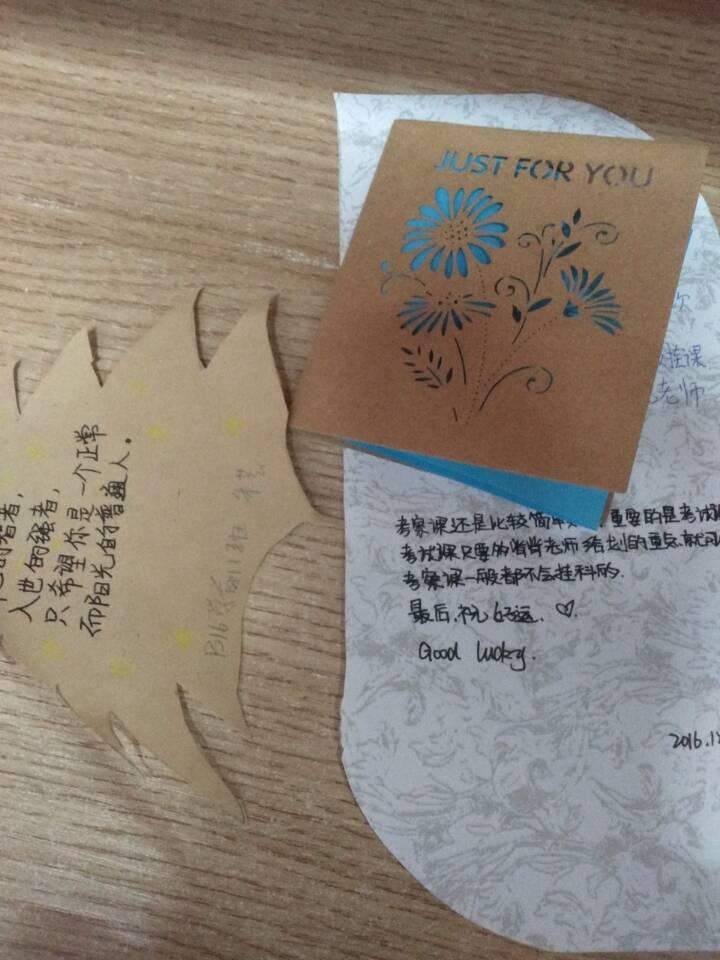 JUST FOR YOU
入世的强者,
只希望你是一个正常
而阳光的普通人。
挂课
老师
考察课还是比较简单 重要的是考试
考试课只要的背背老师给划的重点就
考察课一般都不会挂科的.
最后.祝好运. ♡
Good lucky.
2016.1